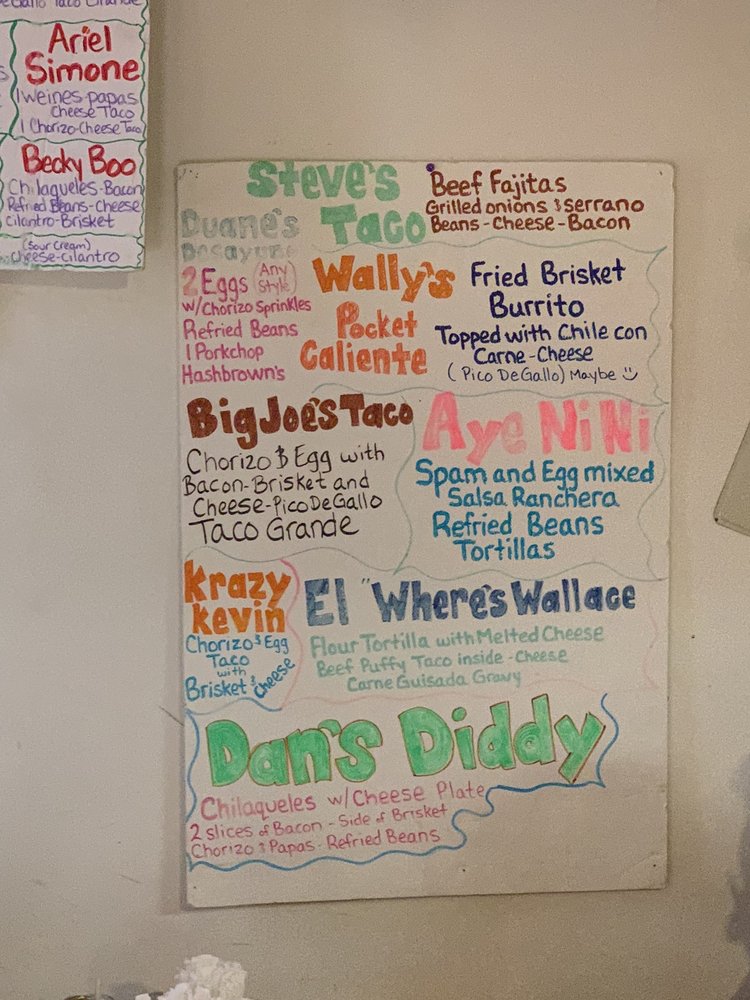 Taco Grande
Ariel
Simone
1 Weines-papas
Cheese Taco
1 Chorizo-Cheese Taco
Becky Boo
Chilaqueles-Bacon
Refried Beans-Cheese
Cilantro-Brisket
(Sour Cream)
Cheese-cilantro
Steve's
Taco
Beef Fajitas
Grilled onions & serrano
Beans-Cheese-Bacon
Duane's
Desayuno
2 Eggs (Any Style)
w/Chorizo Sprinkles
Refried Beans
1 Porkchop
Hashbrown's
Wally's
Pocket
Caliente
Fried Brisket
Burrito
Topped with Chile con
Carne-Cheese
(Pico DeGallo) Maybe
Big Joe's Taco
Chorizo & Egg with
Bacon-Brisket and
Cheese-Pico DeGallo
Taco Grande
Aye Ni Ni
Spam and Egg mixed
Salsa Ranchera
Refried Beans
Tortillas
Krazy
Kevin
Chorizo & Egg
Taco
with
Brisket & Cheese
El "Where's Wallace
Flour Tortilla with Melted Cheese
Beef Puffy Taco inside-Cheese
Carne Guisada Gravy
Dan's Diddy
Chilaqueles w/Cheese Plate
2 slices of Bacon-Side of Brisket
Chorizo & Papas-Refried Beans